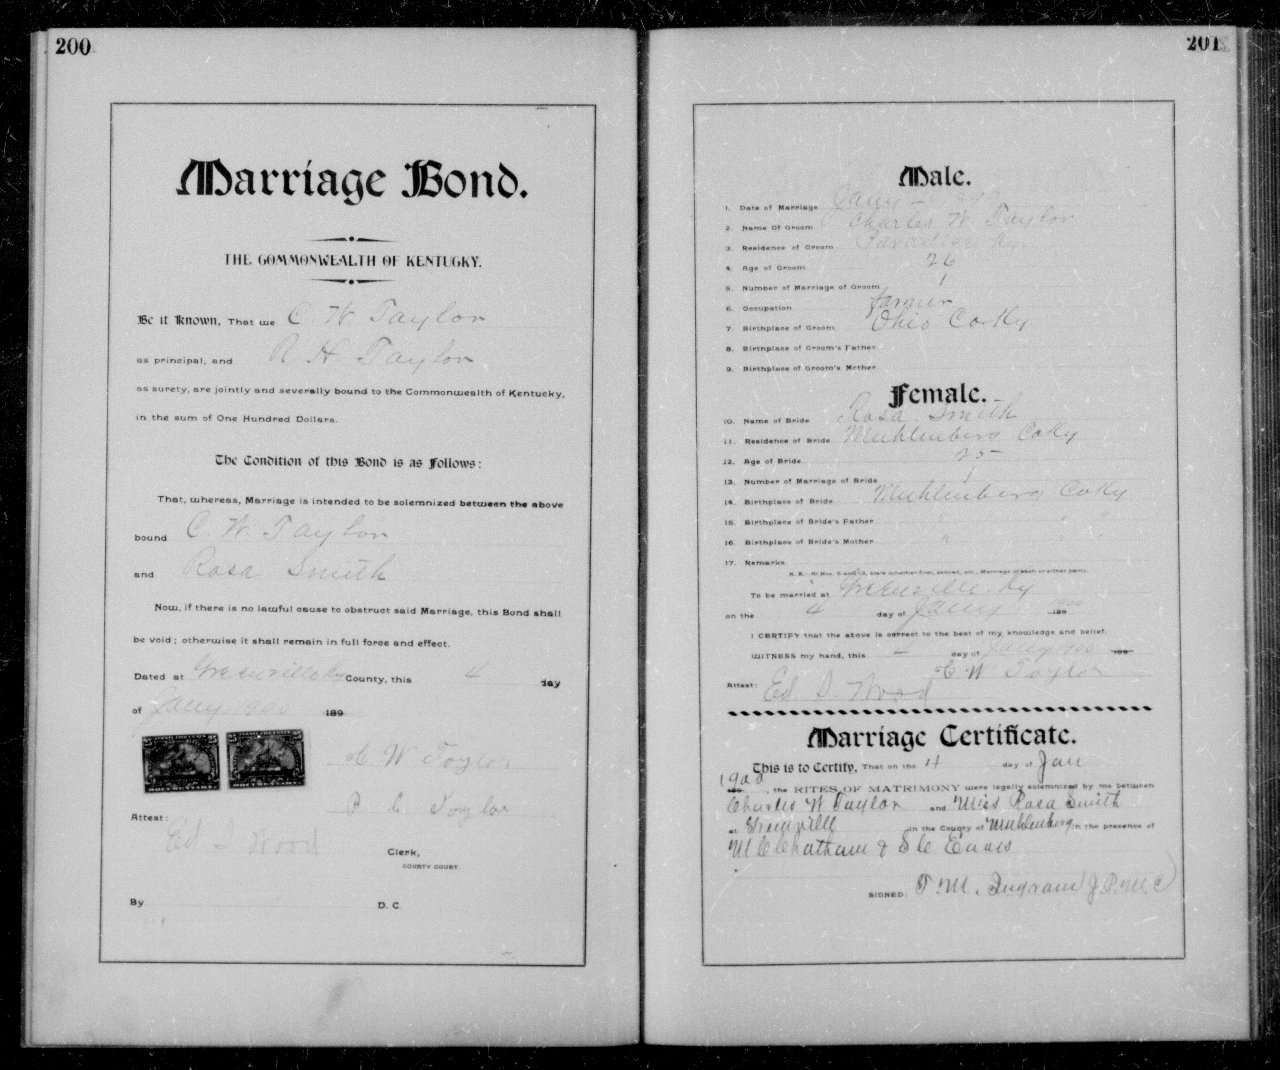 200
Marriage Bond.
THE COMMONWEALTH OF KENTUCKY.
Be it Known, That we C. W. Taylor
as principal, and R. H. Taylor
as surety, are jointly and severally bound to the Commonwealth of Kentucky,
in the sum of One Hundred Dollars.
The Condition of this Bond is as Follows:
That, whereas, Marriage is intended to be solemnized between the above
bound C. W. Taylor
and Rosa Smith
Now, if there is no lawful cause to obstruct said Marriage, this Bond shall
be void; otherwise it shall remain in full force and effect.
Dated at Greenville Ky County, this 4 day
of Jany 1900 189
C W Taylor
Taylor
Attest:
Ed S Wood
Clerk,
COUNTY COURT.
By D. C.
201
Male.
1. Date of Marriage Jany
2. Name Of Groom Charles W. Taylor
3. Residence of Groom Paradise Ky.
4. Age of Groom 26
5. Number of Marriage of Groom 1
6. Occupation farmer
7. Birthplace of Groom Ohio Co Ky
8. Birthplace of Groom's Father
9. Birthplace of Groom's Mother
Female.
10. Name of Bride Rosa Smith
11. Residence of Bride Muhlenberg Co Ky
12. Age of Bride 25
13. Number of Marriage of Bride 1
14. Birthplace of Bride Muhlenberg Co Ky
15. Birthplace of Bride's Father " " "
16. Birthplace of Bride's Mother " " "
17. Remarks
N. B. At Nos. 5 and 13, state whether first, second, etc., Marriage of each or either party.
To be married at Greenville Ky
on the 4 day of Jany 1900 189
I CERTIFY that the above is correct to the best of my knowledge and belief.
WITNESS my hand, this 4 day of Jany 1900 189
C W Taylor
Attest: Ed. S. Wood
Marriage Certificate.
This is to Certify, That on the 4 day of Jan
1900 189 , the RITES OF MATRIMONY were legally solemnized by me between
Charles W Taylor and Miss Rosa Smith
at Greenville in the County of Muhlenberg in the presence of
M C Chatham & S C Eaves
SIGNED: T. M. Ingram J. P. M C